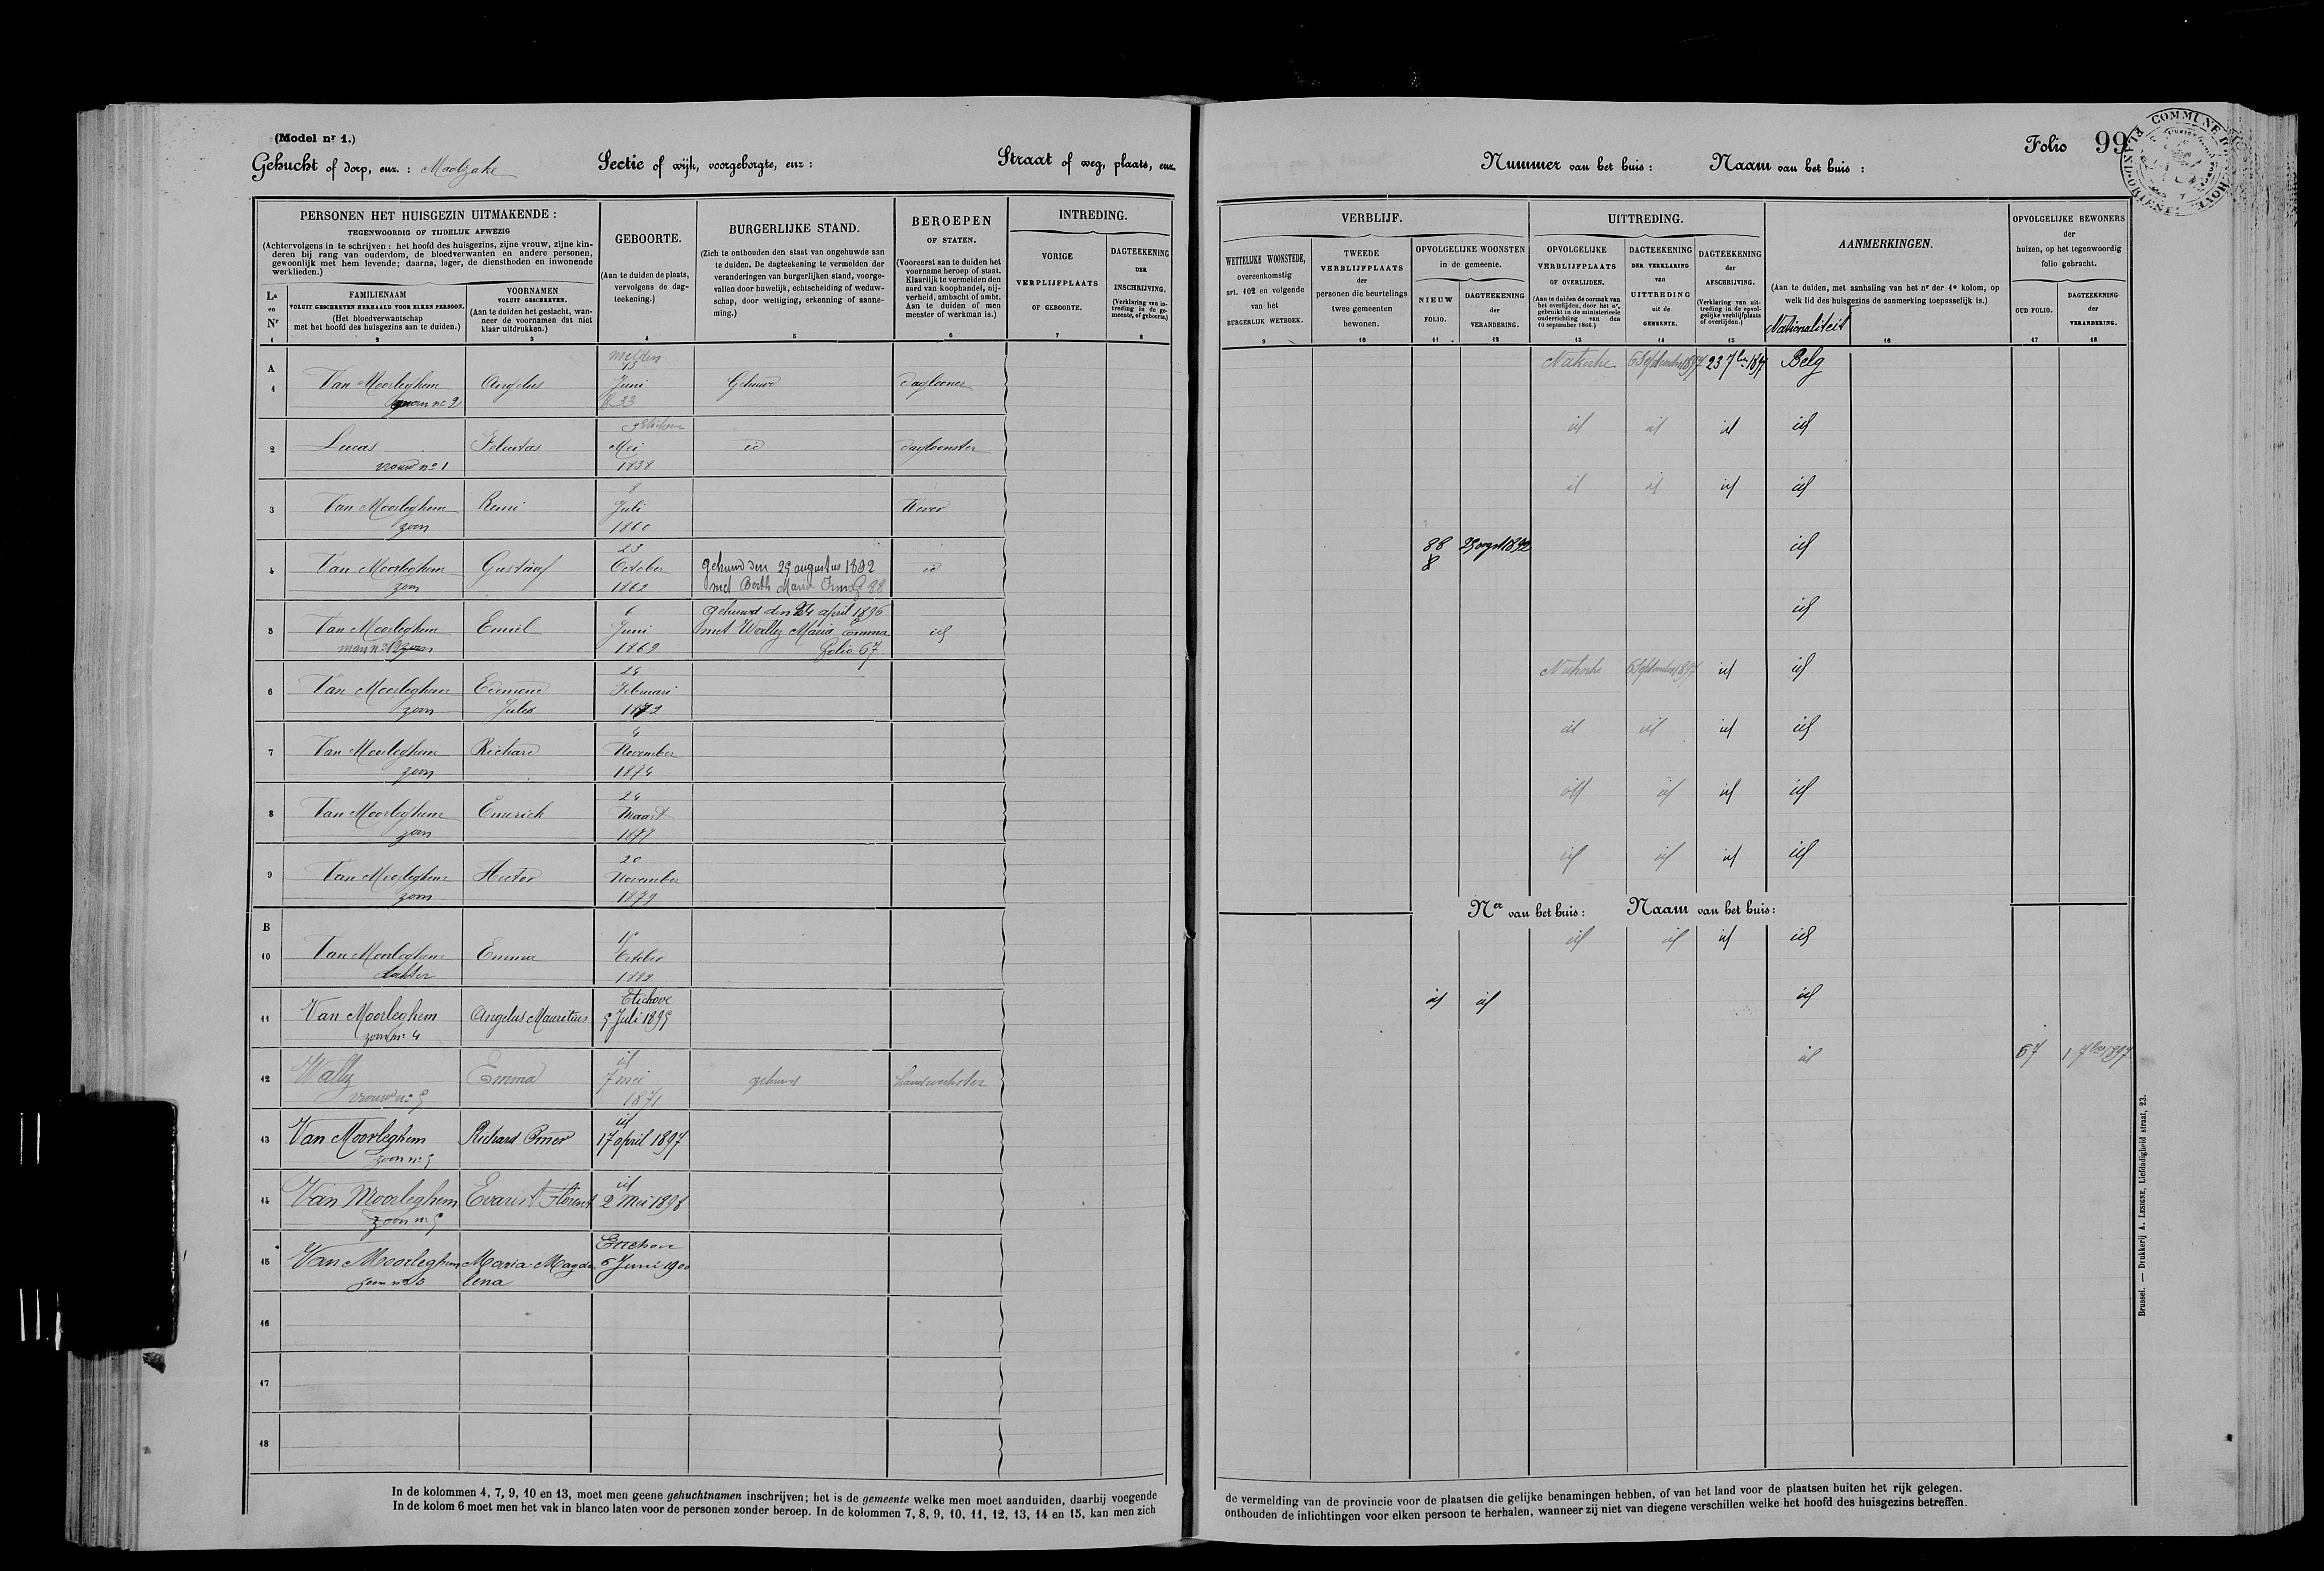 (Model nr 1.)
Gehucht of dorp, enz. : Maalzake
Sectie of wijk, voorgeborgte, enz :
Straat of weg, plaats, enz.
PERSONEN HET HUISGEZIN UITMAKENDE :
TEGENWOORDIG OF TIJDELIJK AFWEZIG
(Achtervolgens in te schrijven : het hoofd des huisgezins, zijne vrouw, zijne kin-
deren bij rang van ouderdom, de bloedverwanten en andere personen,
gewoonlijk met hem levende; daarna, lager, de diensthoden en inwonende
werklieden.)
La
en
Nr
1
FAMILIENAAM
VOLUIT GESCHREVEN HERHAALD VOOR ELKEN PERSOON.
(Het bloedverwantschap
met het hoofd des huisgezins aan te duiden.)
2
VOORNAMEN
VOLUIT GESCHREVEN.
(Aan te duiden het geslacht, wan-
neer de voornamen dat niet
klaar uitdrukken.)
3
GEBOORTE.
(Aan te duiden de plaats,
vervolgens de dag-
teekening.)
4
BURGERLIJKE STAND.
(Zich te onthouden den staat van ongehuwde aan
te duiden. De dagteekening te vermelden der
veranderingen van burgerlijken stand, voorge-
vallen door huwelijk, echtscheiding of weduw-
schap, door wettiging, erkenning of aanne-
ming.)
5
BEROEPEN
OF STATEN.
(Vooreerst aan te duiden het
voorname beroep of staat.
Klaarlijk te vermelden den
aard van koophandel, nij-
verheid, ambacht of ambt.
Aan te duiden of men
meester of werkman is.)
6
INTREDING.
VORIGE
VERPLIJFPLAATS
OF GEBOORTE.
7
DAGTEEKENING
DER
INSCHRIJVING.
(Verklaring van in-
treding in de ge-
meente, of geboorte.)
8
A
1 Van Moorleghem Angelus Melden 15 Juni 33 Gehuwd daglooner
man nr 2
2 Lucas Felicitas Etichove Mei 1838 id dagloonster
vrouw nr 1
3 Van Moorleghem Remi 8 Juli 1860 Wever
zoon
4 Van Moorleghem Gustaaf 23 October 1862 gehuwd den 29 augustus 1892 id
zoon met Maria 88
5 Van Moorleghem Emiel 6 Juni 1869 gehuwd den 24 april 1896 id
man nr 12 zoon met Wallez Maria Emma
folio 67
6 Van Moorleghem Edmond 24 Februari 1872
zoon Jules
7 Van Moorleghem Richard 4 November 1874
zoon
8 Van Moorleghem Emerick 24 Maart 1877
zoon
9 Van Moorleghem Hector 20 November 1879
zoon
B
10 Van Moorleghem Emma October 1882
dochter
11 Van Moorleghem Angelus Mauritius Etichove 5 Juli 1895
zoon nr 4
12 Wallez Emma id 7 mei 1871 gehuwd
vrouw nr 5
13 Van Moorleghem Richard Omer id 17 april 1897
zoon nr 5
14 Van Moorleghem Evarist Florent id 2 Mei 1898
zoon nr 5
15 Van Moorleghem Maria-Magda Etichove 6 Juni 1900
lena
16
17
18
In de kolommen 4, 7, 9, 10 en 13, moet men geene gehuchtnamen inschrijven; het is de gemeente welke men moet aanduiden, daarbij voegende
In de kolom 6 moet men het vak in blanco laten voor de personen zonder beroep. In de kolommen 7, 8, 9, 10, 11, 12, 13, 14 en 15, kan men zich
Nummer van het huis :
Naam van het huis :
Folio 99
COMMUNE D
VERBLIJF.
WETTELIJKE WOONSTEDE,
overeenkomstig
art. 102 en volgende
van het
BURGERLIJK WETBOEK.
9
TWEEDE
VERBLIJFPLAATS
der
personen die beurtelings
twee gemeenten
bewonen.
10
OPVOLGELIJKE WOONSTEN
in de gemeente.
NIEUW
FOLIO.
11
DAGTEEKENING
der
VERANDERING.
12
UITTREDING.
OPVOLGELIJKE
VERBLIJFPLAATS
OF OVERLIJDEN.
(Aan te duiden de oorzaak van
het overlijden, door het nr,
gebruikt in de ministerieele
onderrichting van den
10 september 1866.)
13
DAGTEEKENING
DER VERKLARING
van
UITTREDING
uit de
GEMEENTE.
14
DAGTEEKENING
der
AFSCHRIJVING.
(Verklaring van uit-
treding in de opvol-
gelijke verblijfplaats
of overlijden.)
15
AANMERKINGEN.
(Aan te duiden, met aanhaling van het nr der 1e kolom, op
welk lid des huisgezins de aanmerking toepasselijk is.)
Nationaliteit
16
OPVOLGELIJKE BEWONERS
der
huizen, op het tegenwoordig
folio gebracht.
OUD FOLIO.
17
DAGTEEKENING
der
VERANDERING.
18
Nukerke 6 September 1897 23 7ber 1897 Belg
id id id id
id id id id
88 29 oogst 1892 id
8
id
Nukerke 6 September 1897 id id
id id id id
id id id id
id id id id
Ner van het huis : Naam van het huis :
id id id id
id id id
id 67 1 7ber 1897
Brussel. — Drukkerij A. LESIGNE, Liefdadigheid straat, 23.
de vermelding van de provincie voor de plaatsen die gelijke benamingen hebben, of van het land voor de plaatsen buiten het rijk gelegen.
onthouden de inlichtingen voor elken persoon te herhalen, wanneer zij niet van diegene verschillen welke het hoofd des huisgezins betreffen.